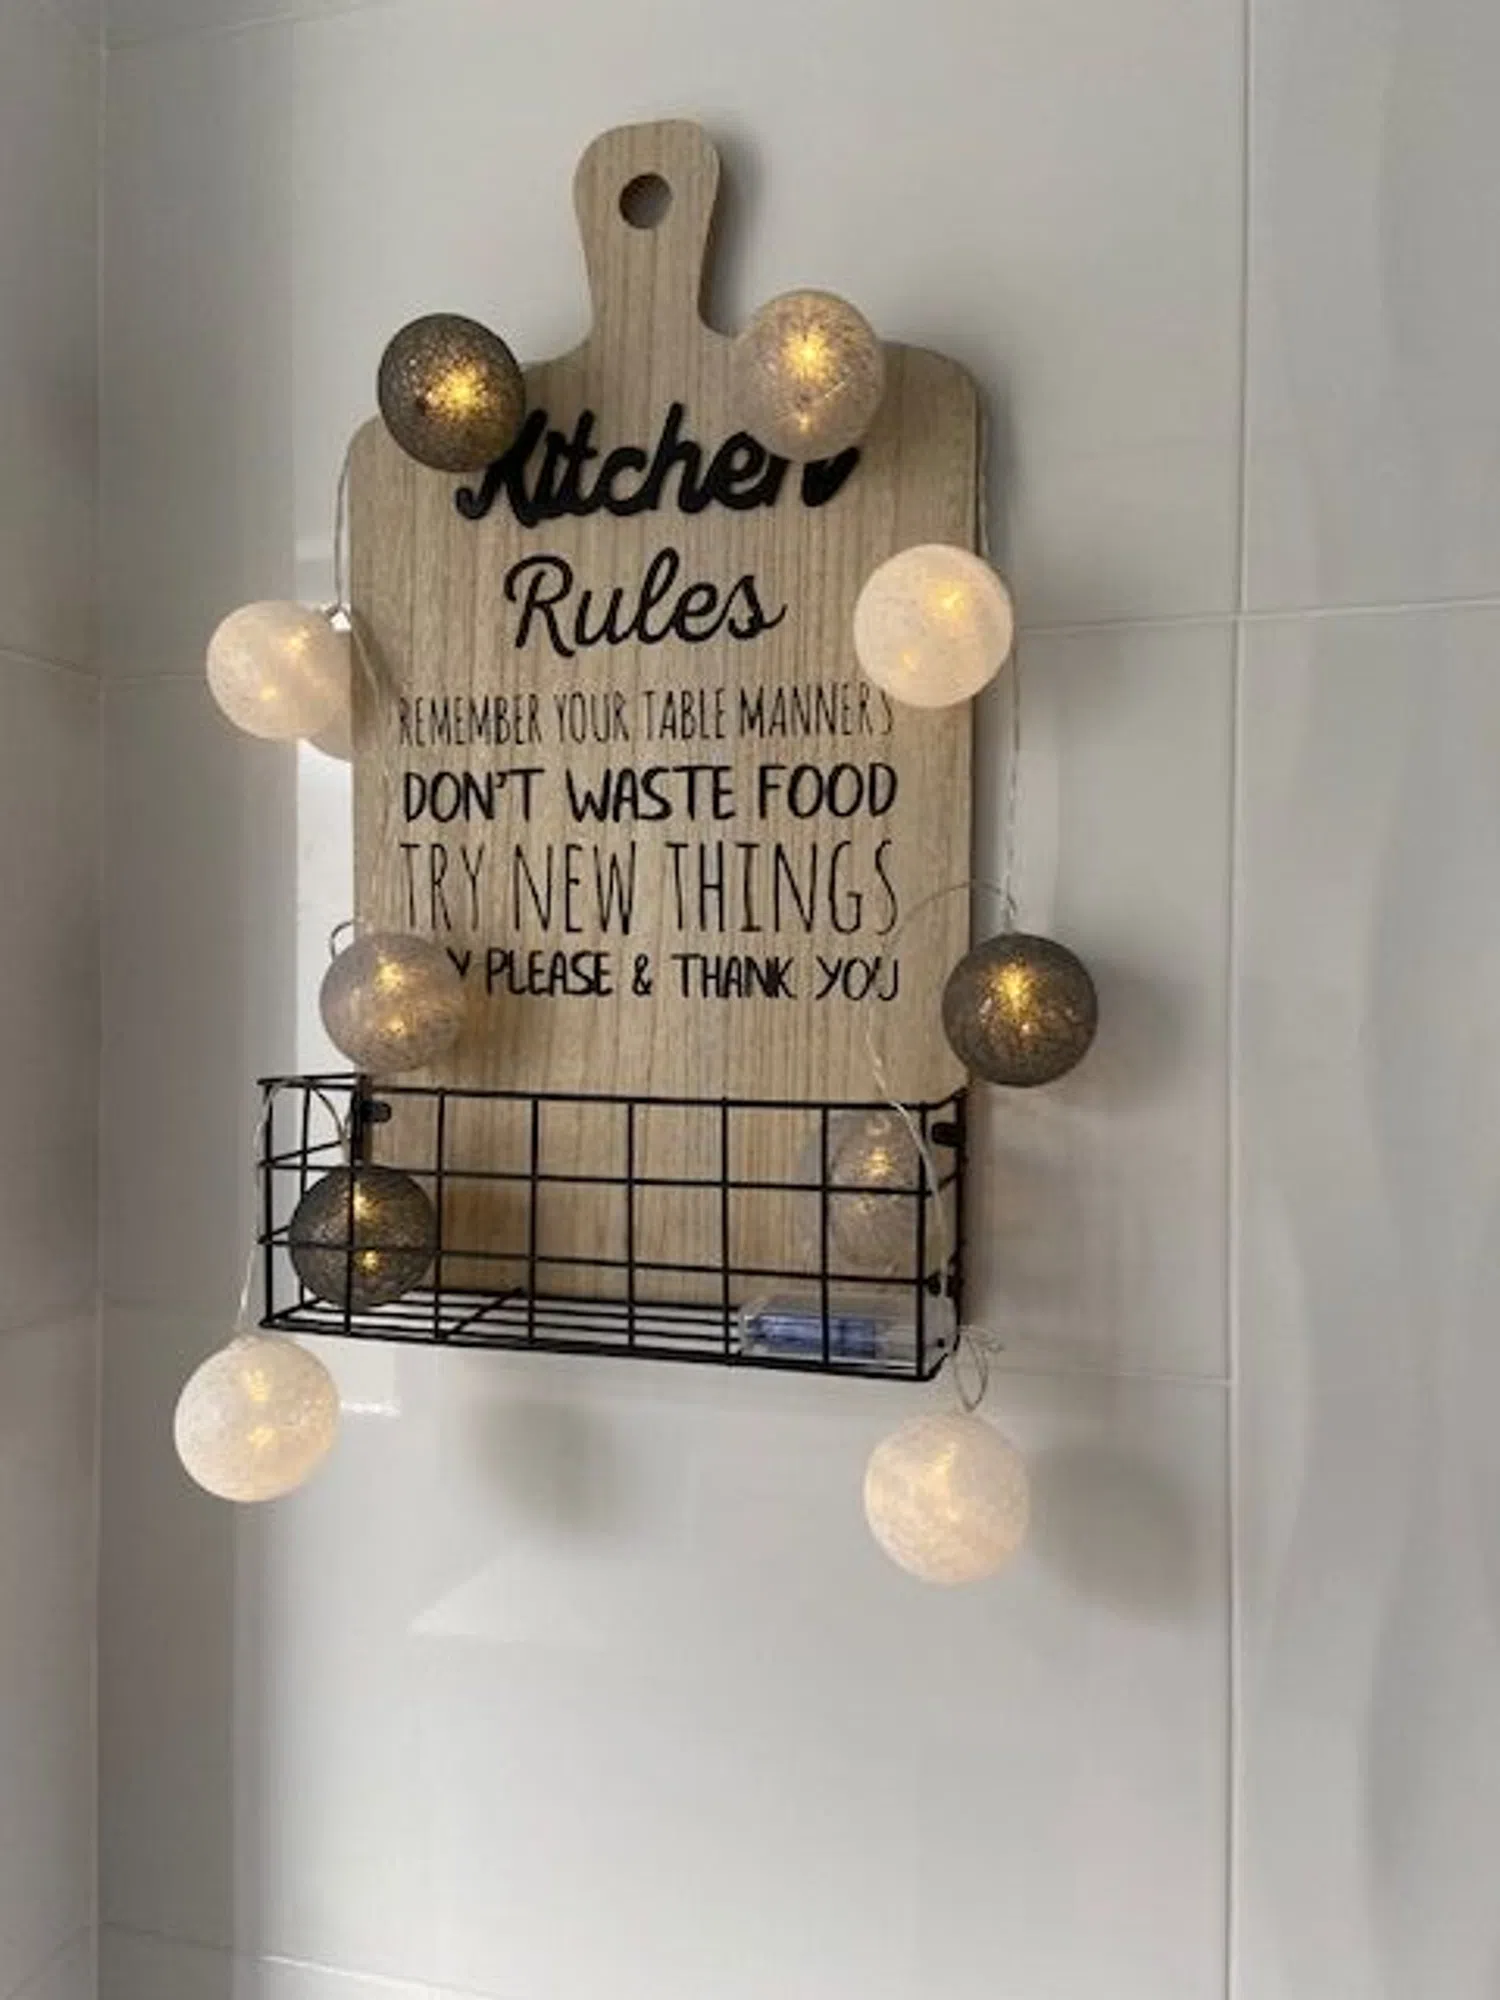 Kitchen
Rules
REMEMBER YOUR TABLE MANNERS
DON'T WASTE FOOD
TRY NEW THINGS
PLEASE & THANK YOU